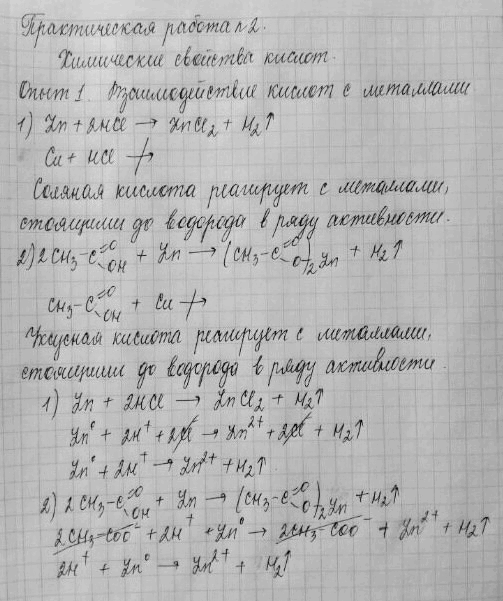 Практическая работа №2.
Химические свойства кислот.
Опыт 1. Взаимодействие кислот с металлами
1) Zn + 2HCl → ZnCl₂ + H₂↑
Cu + HCl ↛
Соляная кислота реагирует с металлами,
стоящими до водорода в ряду активности.
2) 2CH₃-C(=O)OH + Zn → (CH₃-C(=O)O)₂Zn + H₂↑
CH₃-C(=O)OH + Cu ↛
Уксусная кислота реагирует с металлами,
стоящими до водорода в ряду активности.
1) Zn + 2HCl → ZnCl₂ + H₂↑
Zn⁰ + 2H⁺ + 2Cl⁻ → Zn²⁺ + 2Cl⁻ + H₂↑
Zn⁰ + 2H⁺ → Zn²⁺ + H₂↑
2) 2CH₃-C(=O)OH + Zn → (CH₃-C(=O)O)₂Zn + H₂↑
2CH₃-COO⁻ + 2H⁺ + Zn⁰ → 2CH₃-COO⁻ + Zn²⁺ + H₂↑
2H⁺ + Zn⁰ → Zn²⁺ + H₂↑